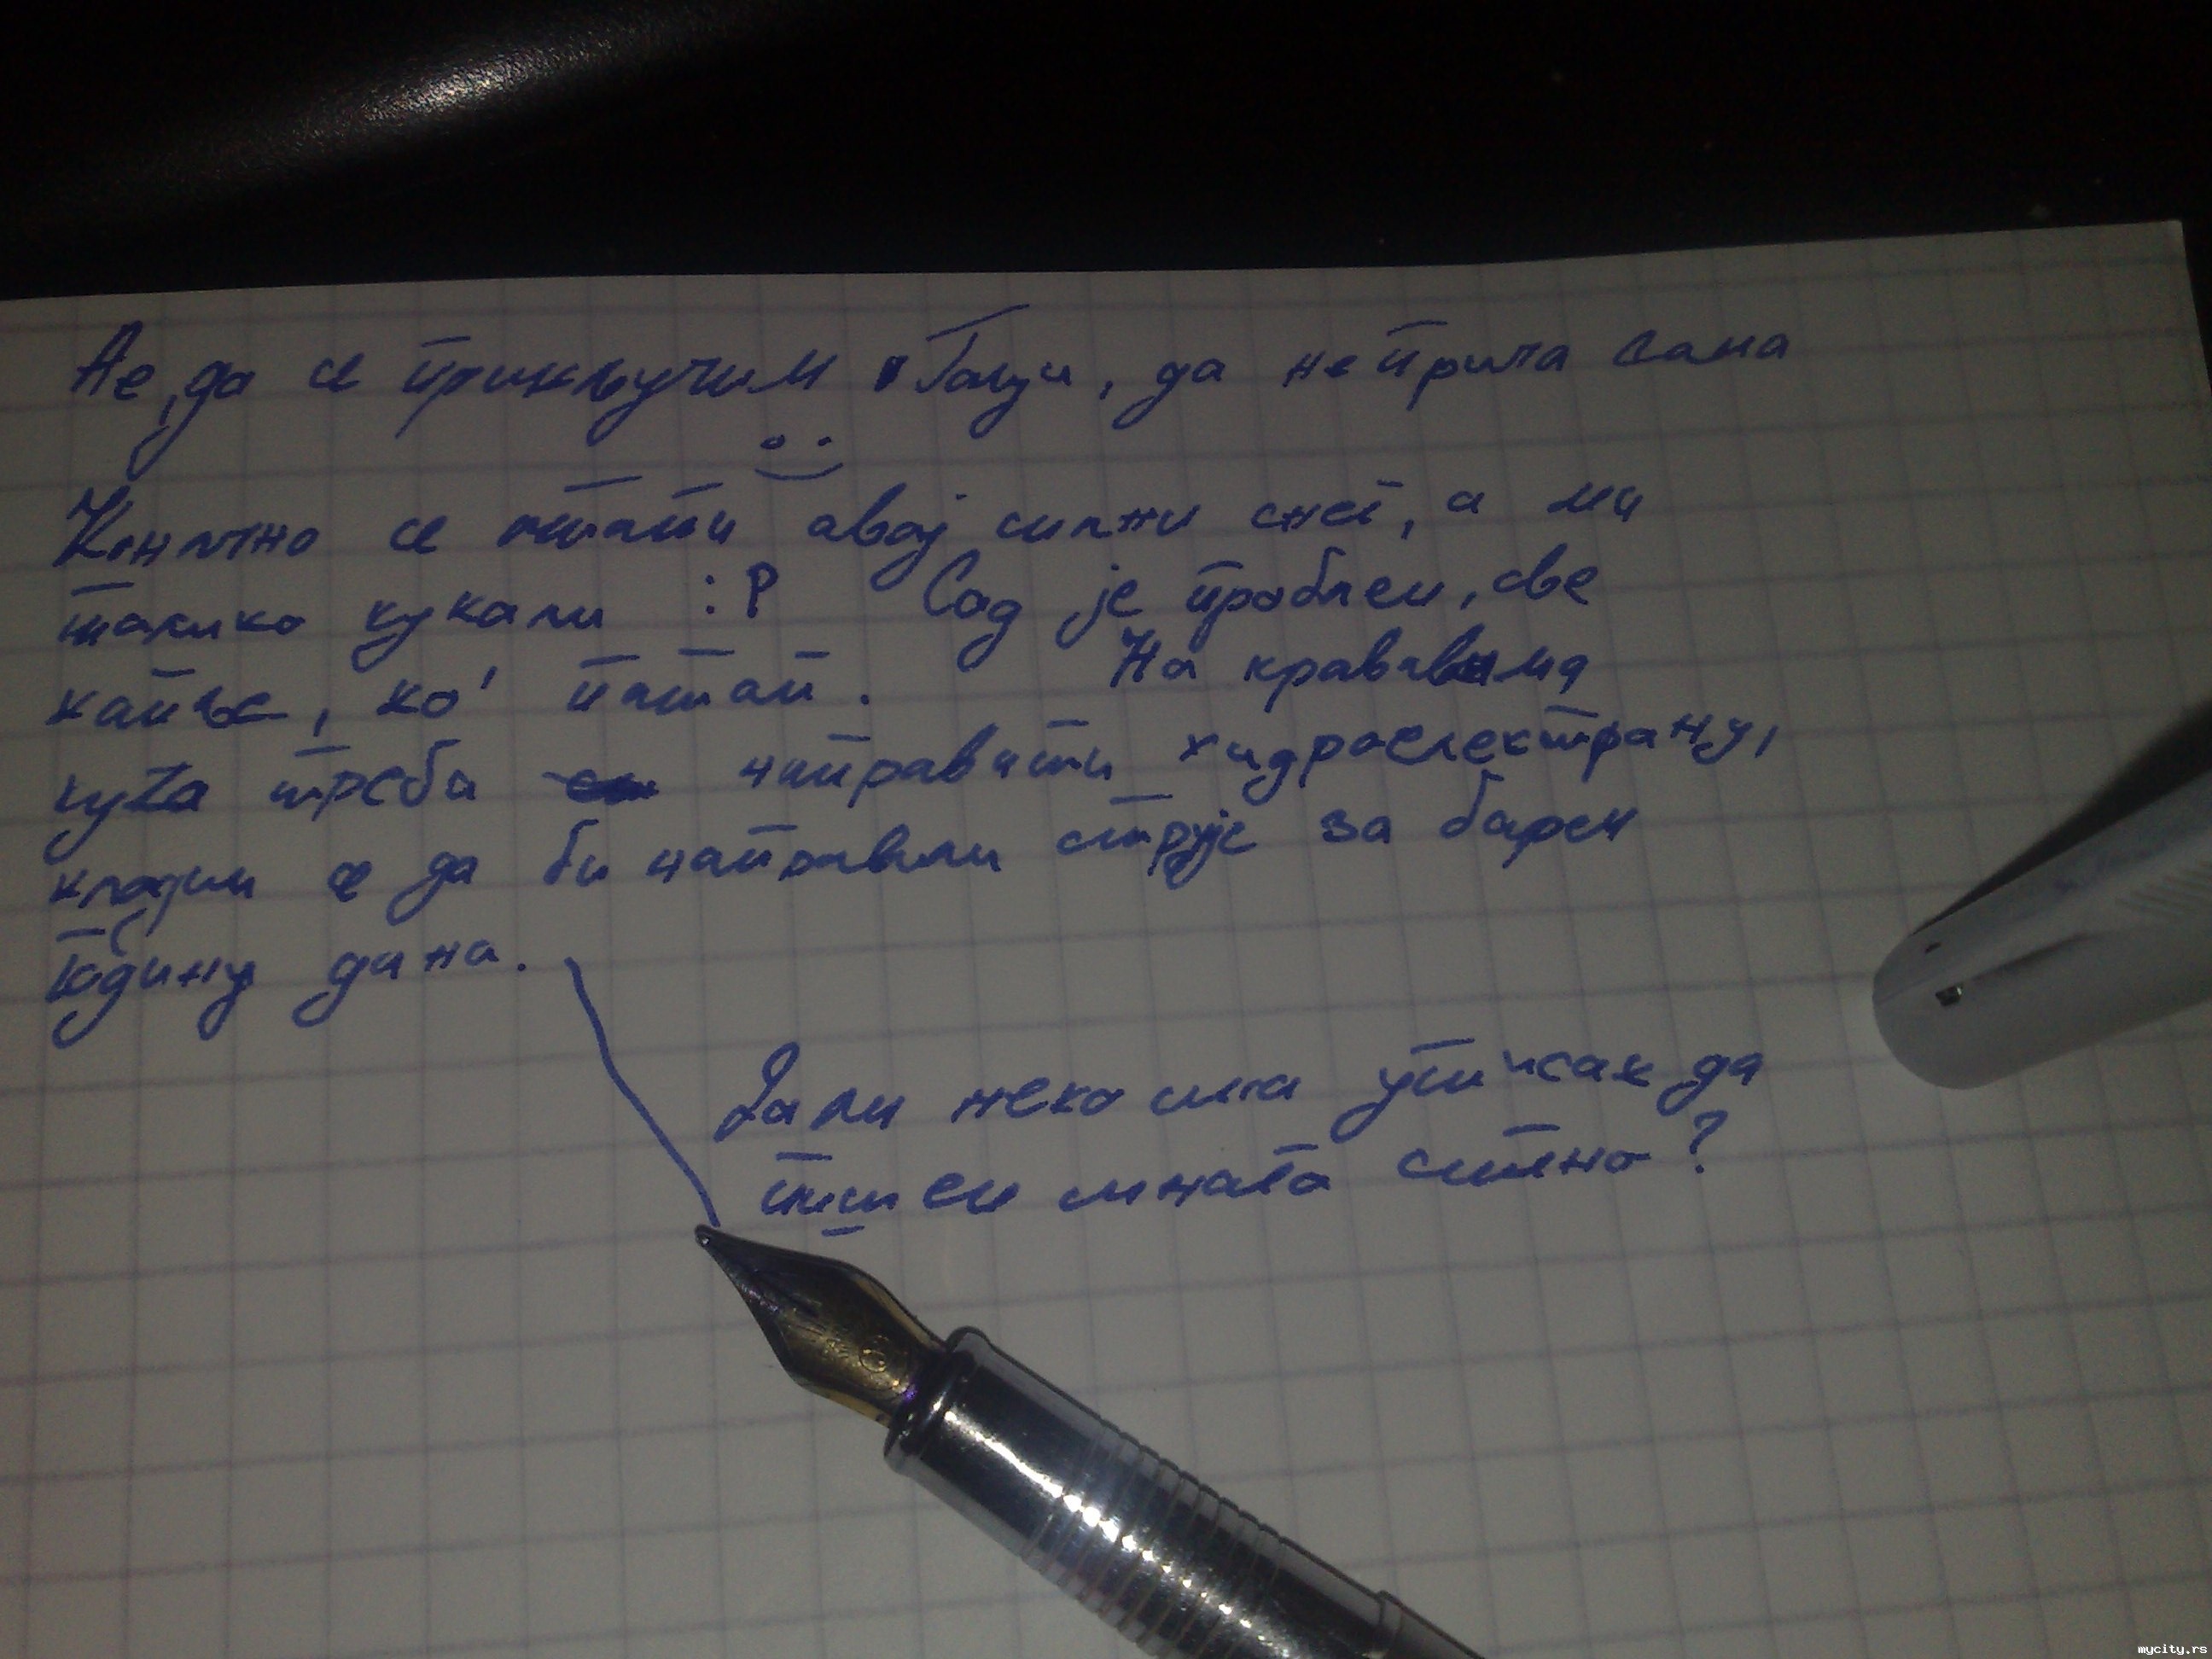 Ае, да се прикључим Гоци, да не прича сама
Коначно се отопи овај силни снег, а ми
толико кукали :P Сад је проблем, све
капље, ко' потоп. На
кућа треба направити хидроелектрану,
кладим се да би направили струје за барем
годину дана.
Да ли неко има утисак да
пишем много ситно?
mycity.rs